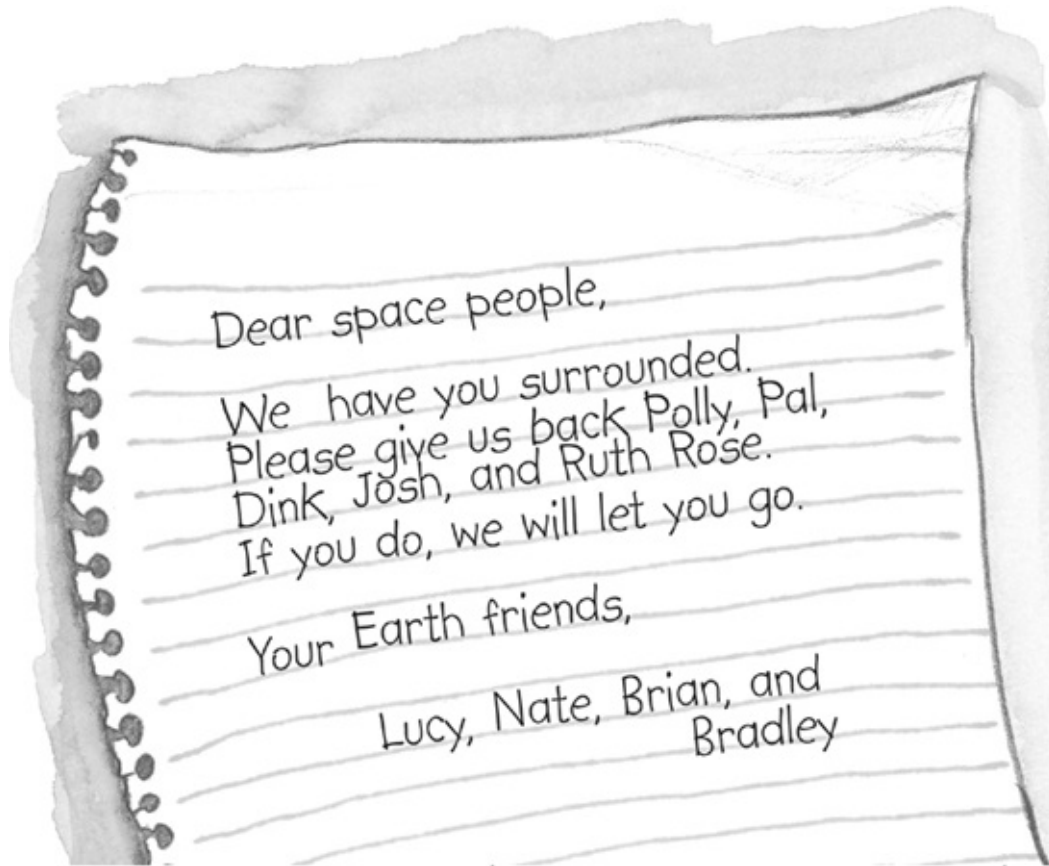 Dear space people,
We have you surrounded.
Please give us back Polly, Pal,
Dink, Josh, and Ruth Rose.
If you do, we will let you go.
Your Earth friends,
Lucy, Nate, Brian, and
Bradley